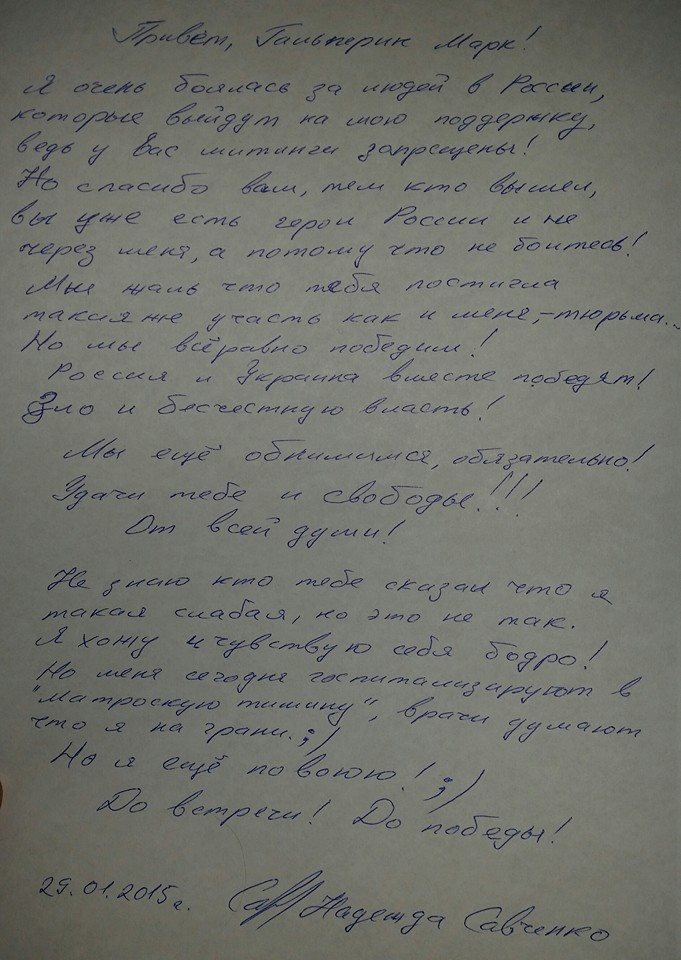 Привет, Гальперин Марк!
Я очень боялась за людей в России,
которые выйдут на мою поддержку,
ведь у вас митинги запрещены!
Но спасибо вам, тем кто вышел,
вы уже есть герои России и не
через меня, а потому что не боитесь!
Мне жаль что тебя постигла
такая же участь как и меня, – тюрьма...
Но мы всёравно победим!
Россия и Украина вместе победят!
Зло и бесчестную власть!
Мы ещё обнимимся, обязательно!
Удачи тебе и свободы!!!
От всей души!
Не знаю кто тебе сказал что я
такая слабая, но это не так.
Я хожу и чувствую себя бодро!
Но меня сегодня госпитализируют в
"Матроскую тишину", врачи думают
что я на грани. ;)
Но я ещё повоюю! ;)
До встречи! До победы!
29.01.2015г. Надежда Савченко